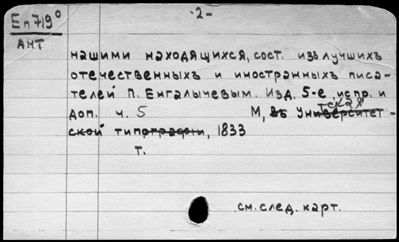 Еп 719°
-2-
АНТ
нашими находящихся, сост. из лучшихъ
отечественныхъ и иностранныхъ писа-
телей П. Енгалычевым. Изд. 5-е, испр. и
тская
доп. ч. 5 М, въ Университет-
ской типографии, 1833
т.
см. след. карт.